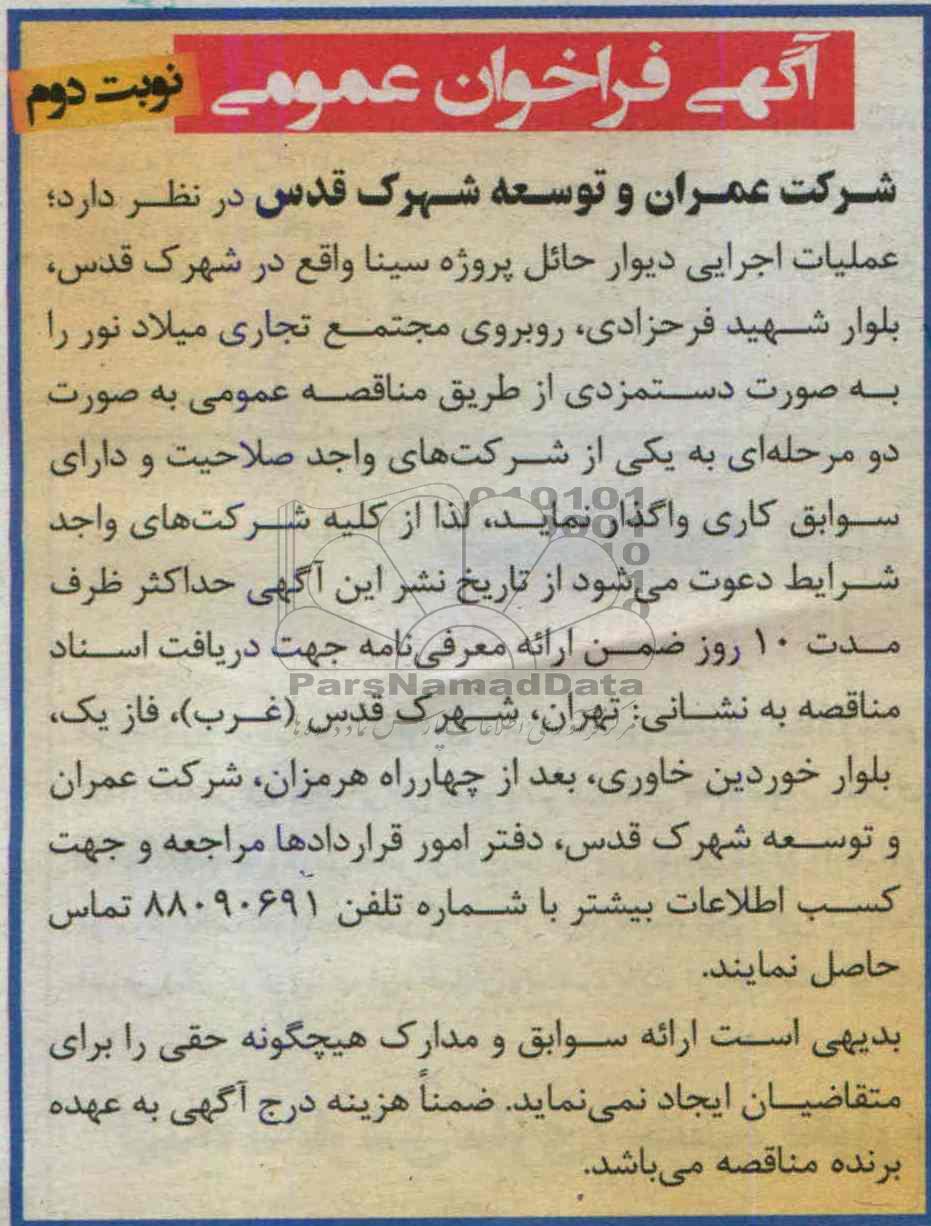 آگهی فراخوان عمومی
نوبت دوم
شرکت عمران و توسعه شهرک قدس در نظر دارد؛
عملیات اجرایی دیوار حائل پروژه سینا واقع در شهرک قدس،
بلوار شهید فرحزادی، روبروی مجتمع تجاری میلاد نور را
به صورت دستمزدی از طریق مناقصه عمومی به صورت
دو مرحله‌ای به یکی از شرکت‌های واجد صلاحیت و دارای
سوابق کاری واگذار نماید، لذا از کلیه شرکت‌های واجد
شرایط دعوت می‌شود از تاریخ نشر این آگهی حداکثر ظرف
مدت ۱۰ روز ضمن ارائه معرفی‌نامه جهت دریافت اسناد
مناقصه به نشانی: تهران، شهرک قدس (غرب)، فاز یک،
بلوار خوردین خاوری، بعد از چهارراه هرمزان، شرکت عمران
و توسعه شهرک قدس، دفتر امور قراردادها مراجعه و جهت
کسب اطلاعات بیشتر با شماره تلفن ۸۸۰۹۰۶۹۱ تماس
حاصل نمایند.
بدیهی است ارائه سوابق و مدارک هیچگونه حقی را برای
متقاضیان ایجاد نمی‌نماید. ضمناً هزینه درج آگهی به عهده
برنده مناقصه می‌باشد.
ParsNamadData